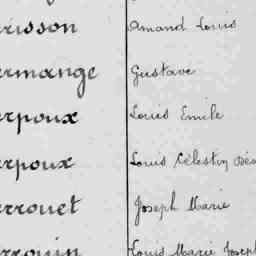 risson Amand Louis
rmange Gustave
rpoux Louis Emile
rpoux Louis Célestin
rrouet Joseph Marie
Louis Marie Joseph